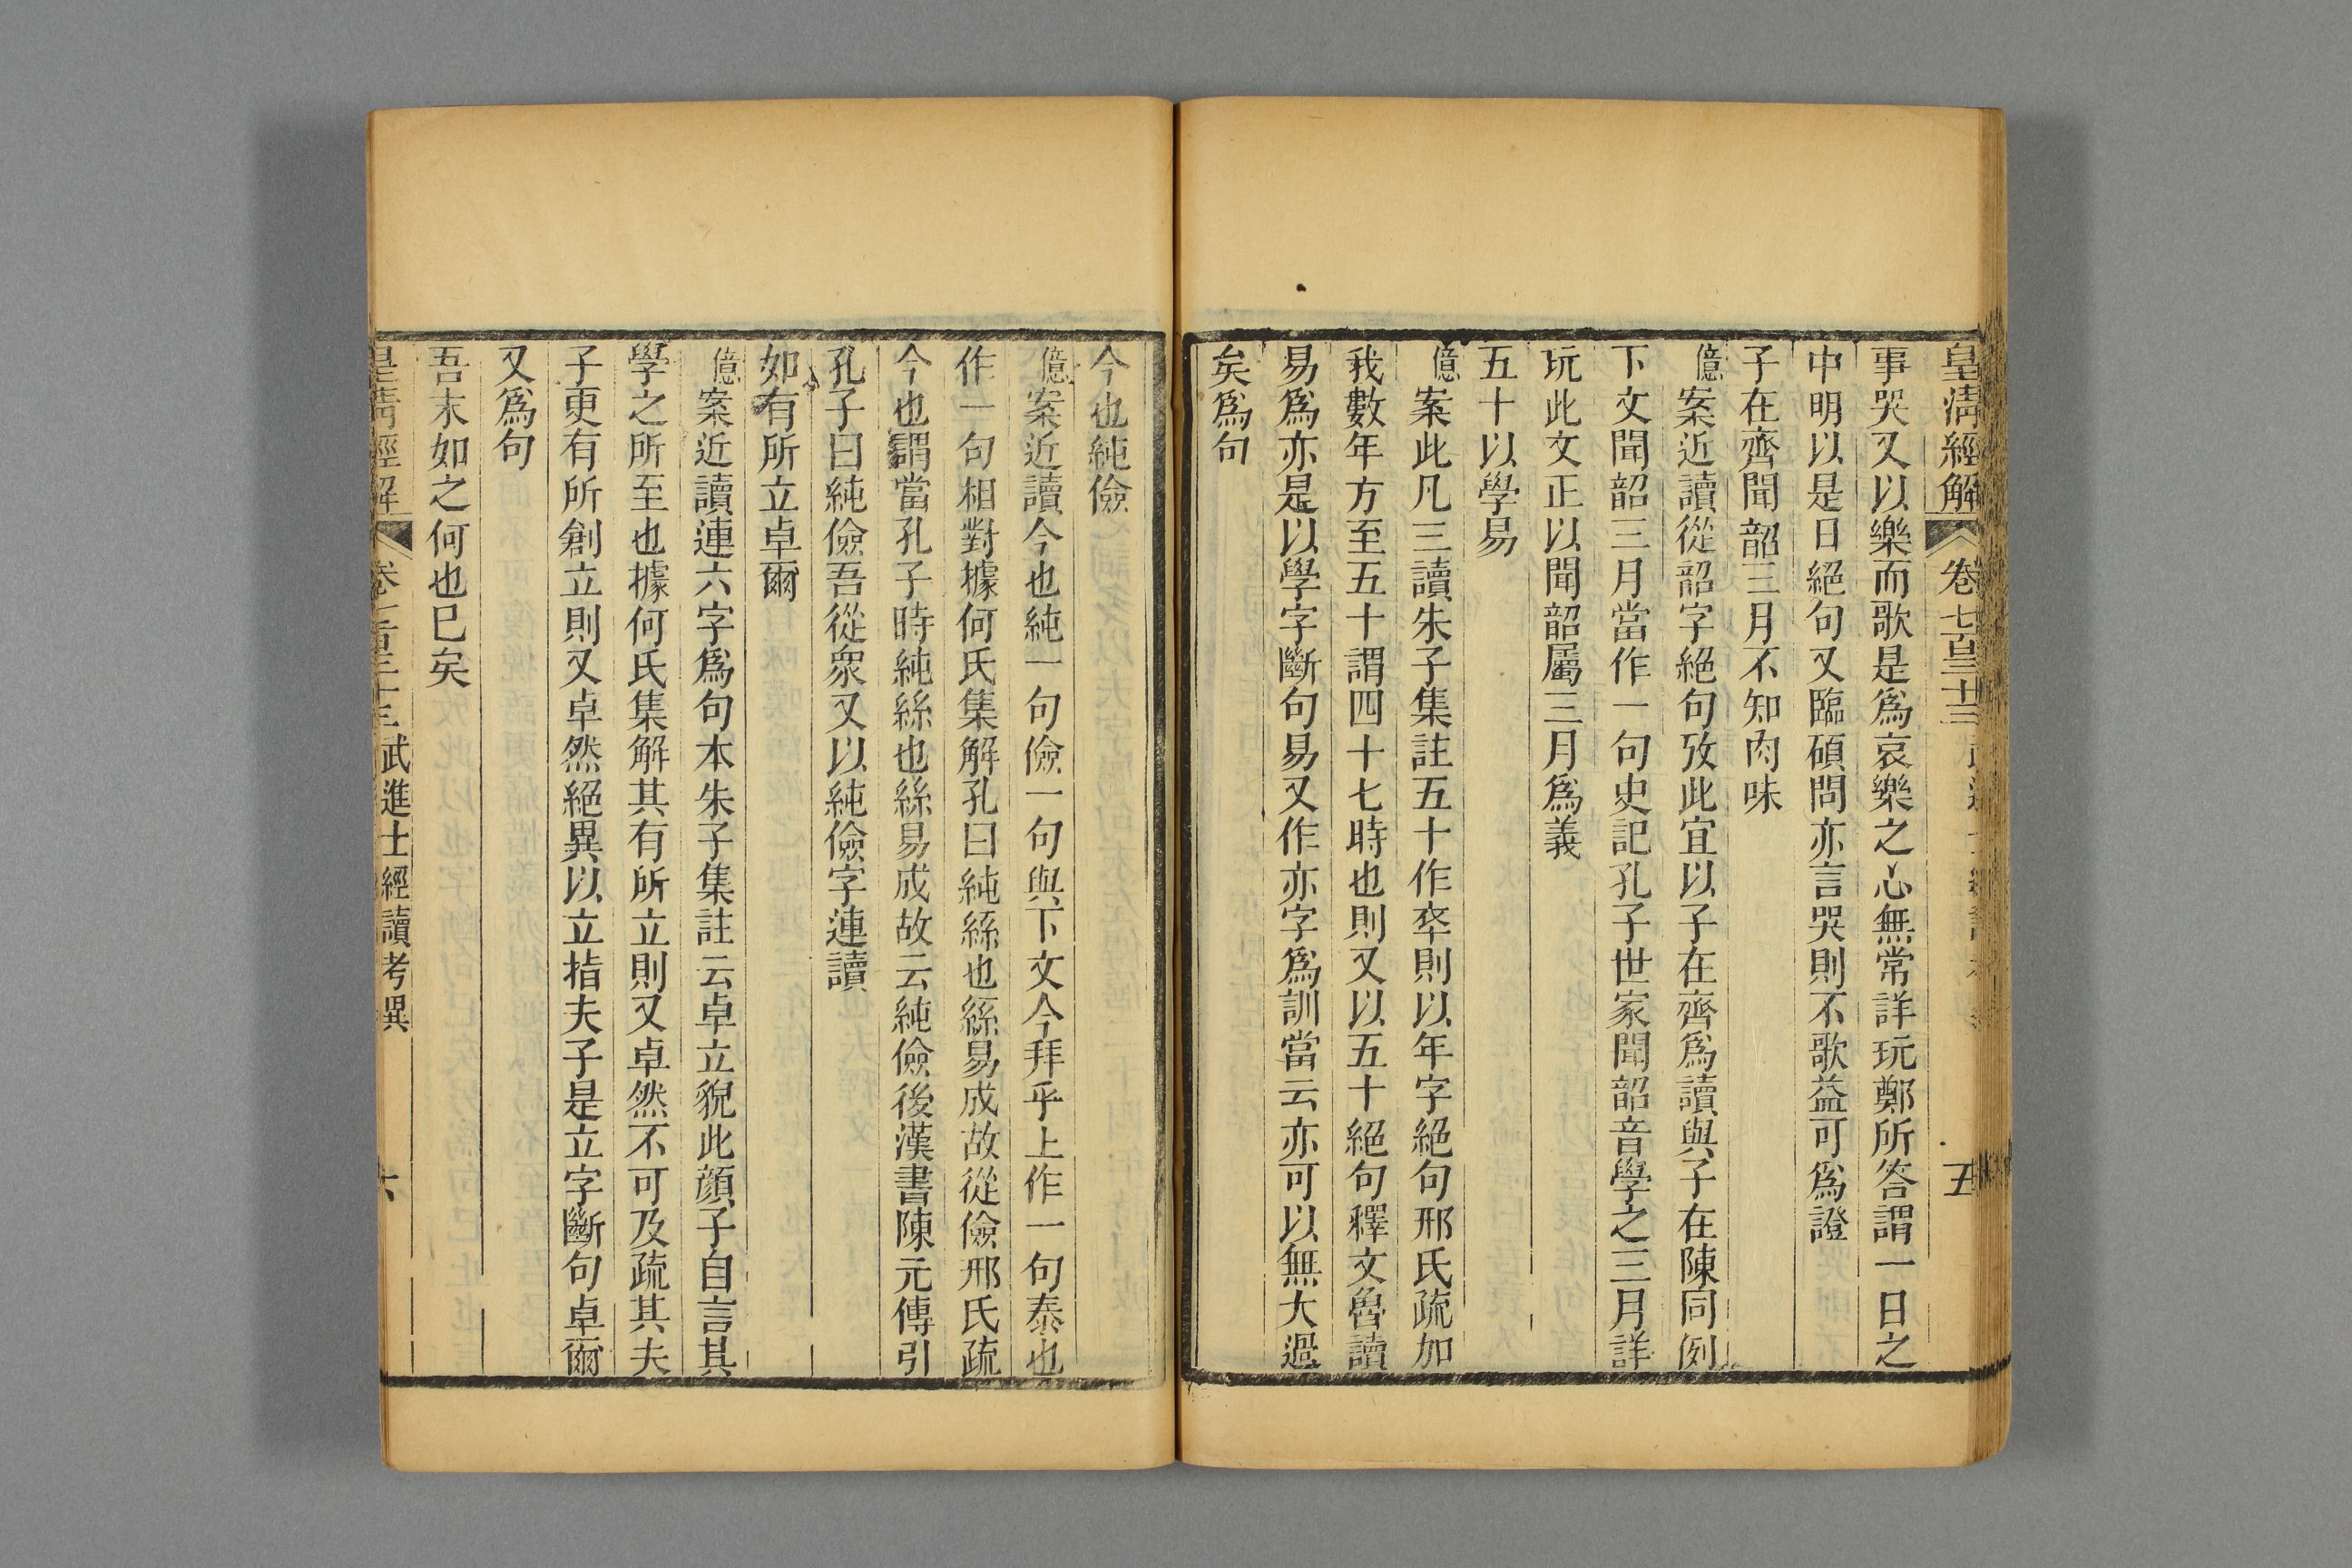 皇清經解 卷七百三十三 五
事哭又以樂而歌是爲哀樂之心無常詳玩鄭所答謂一日之
中明以是日絕句又臨碩問亦言哭則不歌益可爲證
子在齊聞韶三月不知肉味
億案近讀從韶字絕句攷此宜以子在齊爲讀與子在陳同例
下文聞韶三月當作一句史記孔子世家聞韶音學之三月詳
玩此文正以聞韶屬三月爲義
五十以學易
億案此凡三讀朱子集註五十作卒則以年字絕句邢氏疏加
我數年方至五十謂四十七時也則又以五十絕句釋文魯讀
易爲亦是以學字斷句易又作亦字爲訓當云亦可以無大過
矣爲句
今也純儉
億案近讀今也純一句儉一句與下文今拜乎上作一句泰也
作一句相對據何氏集解孔曰純絲也絲易成故從儉邢氏疏
今也謂當孔子時純絲也絲易成故云純儉後漢書陳元傳引
孔子曰純儉吾從衆又以純儉字連讀
如有所立卓爾
億案近讀連六字爲句本朱子集註云卓立貌此顏子自言其
學之所至也據何氏集解其有所立則又卓然不可及疏其夫
子更有所創立則又卓然絕異以立指夫子是立字斷句卓爾
又爲句
吾末如之何也已矣
皇清經解 卷七百三十三 武進士經讀考異 六